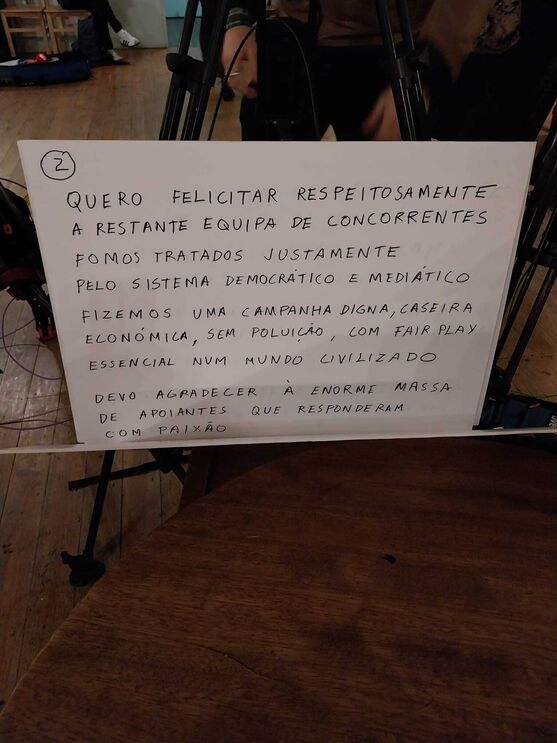 2
QUERO FELICITAR RESPEITOSAMENTE
A RESTANTE EQUIPA DE CONCORRENTES
FOMOS TRATADOS JUSTAMENTE
PELO SISTEMA DEMOCRÁTICO E MEDIÁTICO
FIZEMOS UMA CAMPANHA DIGNA, CASEIRA
ECONÓMICA, SEM POLUIÇÃO, COM FAIR PLAY
ESSENCIAL NUM MUNDO CIVILIZADO
DEVO AGRADECER À ENORME MASSA
DE APOIANTES QUE RESPONDERAM
COM PAIXÃO